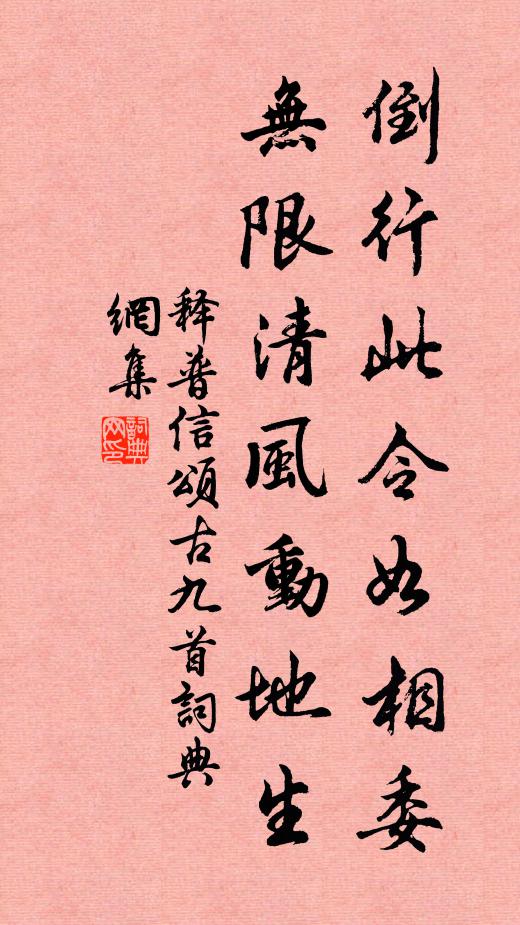 倒行此令如相委
無限清風動地生
释普信頌古九首詞典
網集
詞典
网印